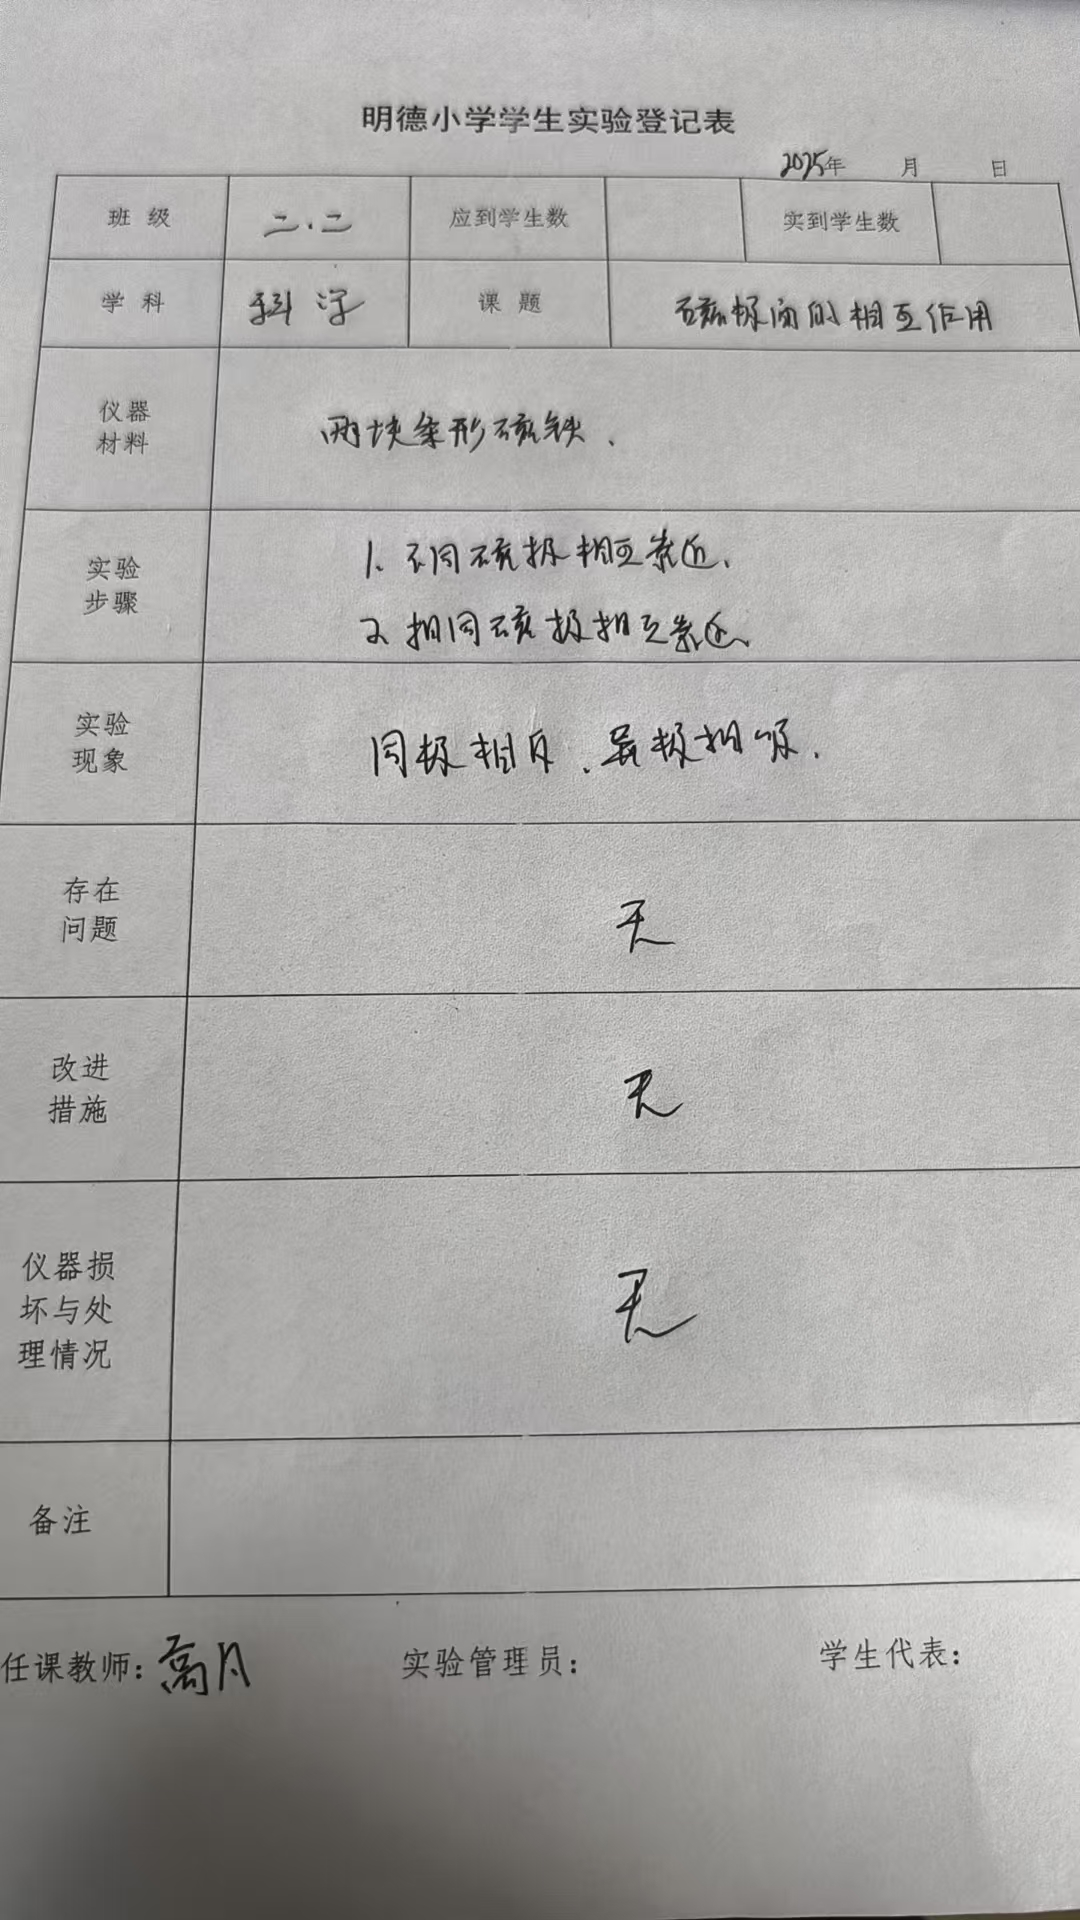 明德小学学生实验登记表
2025年 月 日
班 级 二.二 应到学生数 实到学生数
学 科 科学 课 题 磁极间的相互作用
仪器
材料
两块条形磁铁.
实验
步骤
1. 不同磁极相互靠近.
2. 相同磁极相互靠近.
实验
现象
同极相斥、异极相吸.
存在
问题
无
改进
措施
无
仪器损
坏与处
理情况
无
备注
任课教师: 高月 实验管理员: 学生代表: